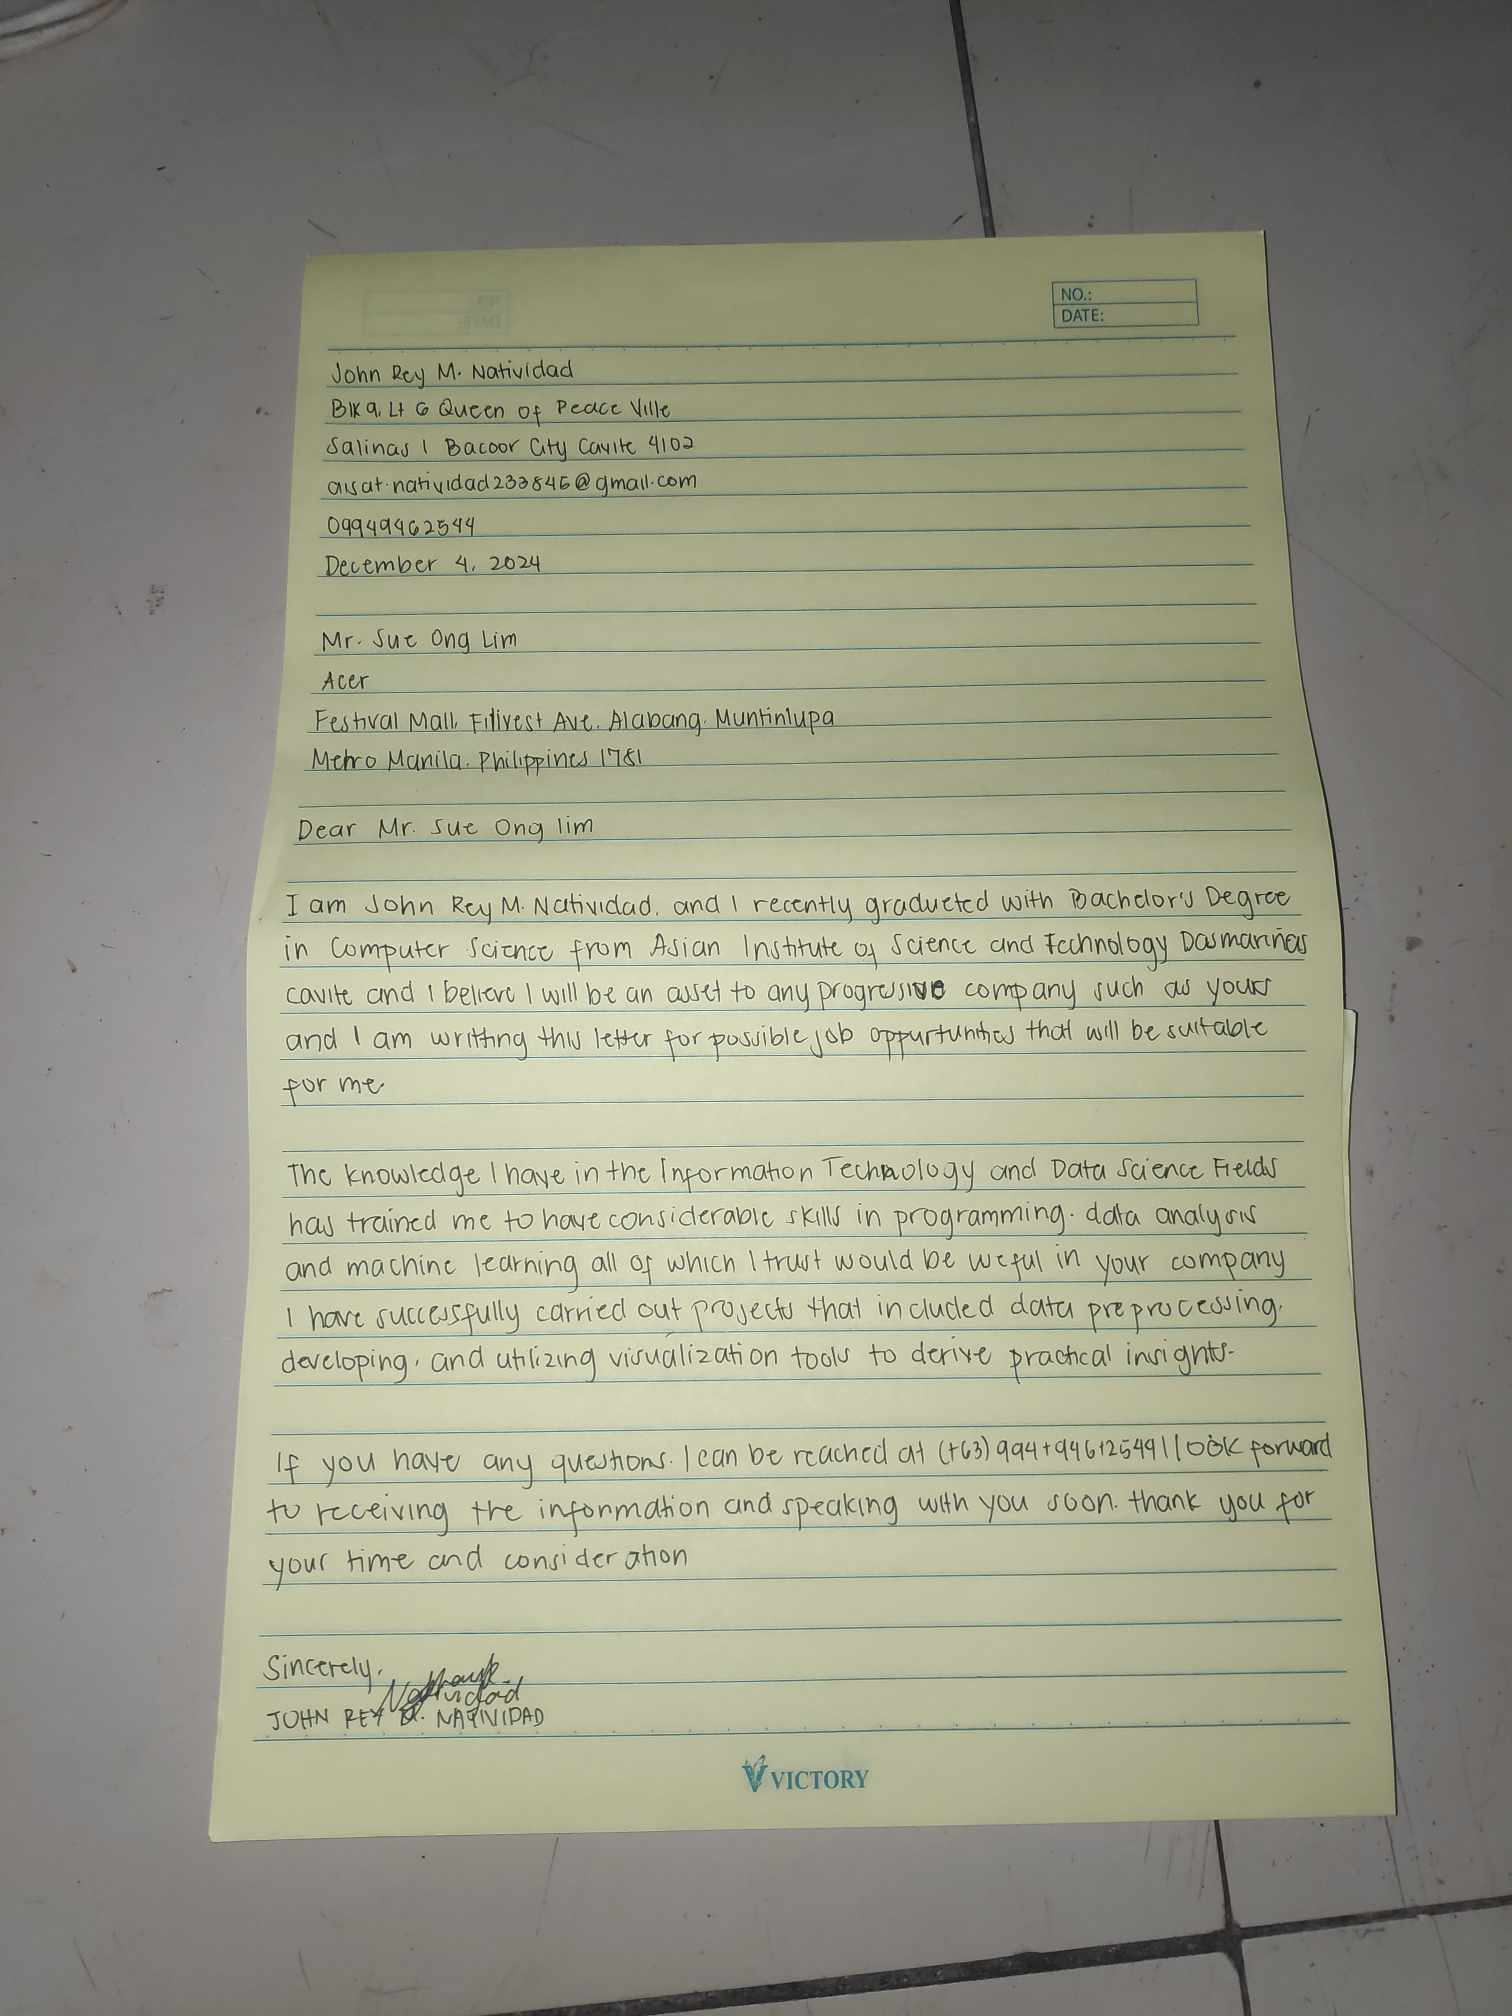 NO.:
DATE:
John Rey M. Natividad
Blk 9, Lt 6 Queen of Peace Ville
Salinas 1 Bacoor City Cavite 4102
aisat.natividad233845@gmail.com
09949462544
December 4, 2024
Mr. Sue Ong Lim
Acer
Festival Mall, Filivest Ave. Alabang, Muntinlupa
Metro Manila, Philippines 1781
Dear Mr. Sue Ong lim
I am John Rey M. Natividad, and I recently graducted with Bachelor's Degree
in Computer Science from Asian Institute of Science and Technology Dasmariñas
Cavite and I believe I will be an asset to any progressive company such as yours
and I am writting this letter for possible job oppurtunities that will be suitable
for me.
The knowledge I have in the Information Technology and Data Science Fields
has trained me to have considerable skills in programming, data analysis
and machine learning all of which I trust would be useful in your company
I have successfully carried out projects that included data preprocessing,
developing, and utilizing visualization tools to derive practical insights.
If you have any questions, I can be reached at (+63) 994+946+2549 I look forward
to receiving the information and speaking with you soon. thank you for
your time and consideration
Sincerely,
Natividad
JOHN REY M. NATIVIDAD
VICTORY